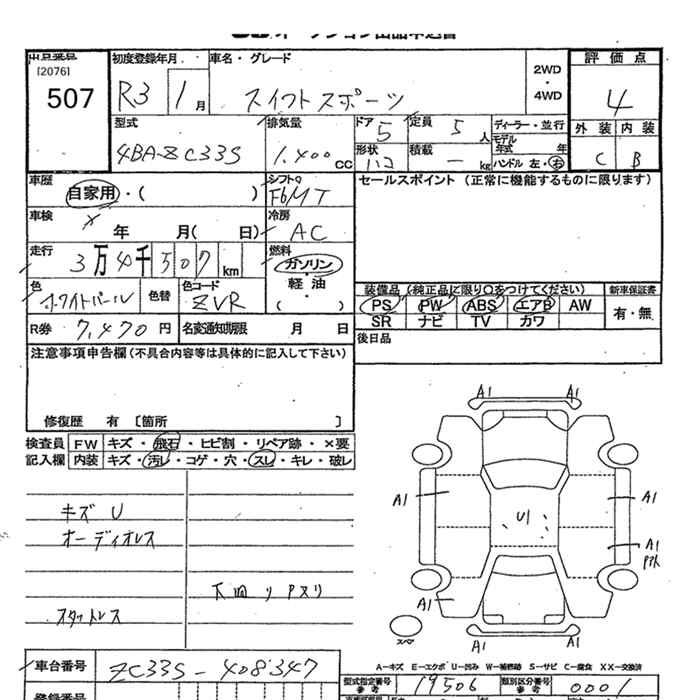 オークション出品申込書
出品番号 初度登録年月 車名・グレード 評価点
[2076]
507 R3 1月 スイフトスポーツ 2WD・4WD 4
型式 排気量 ドア 5 定員 5人 ディーラー・並行 外装 内装
4BA-ZC33S 1.400CC 形状 ハコ 積載 -kg モデル年式 年 ハンドル 左・右 C B
車歴 シフト セールスポイント (正常に機能するものに限ります)
自家用・( ) F6MT
車検 × 年 月( 日) 冷房 AC
走行 3万4千507km 燃料 ガソリン・軽油・( )
色 ホワイトパール 色替 色コード ZVR 装備品 (純正品に限り○をつけてください) 新車保証書
PS PW ABS エアB AW 有・無
SR ナビ TV カワ
R券 7,470円 名変通知期限 月 日 後日品
注意事項申告欄(不具合内容等は具体的に記入して下さい)
修復歴 有 [箇所 ]
検査員 FW キズ・飛石・ヒビ割・リペア跡・×要
記入欄 内装 キズ・汚レ・コゲ・穴・スレ・キレ・破レ
A1 A1
A1 A1
キズ U U1
オーディオレス A1
下回リ サスリ
A1
スタットレス スペア
A1 A1
A-キズ E-エクボ U-凹み W-補修跡 S-サビ C-腐食 XX-交換済
車台番号 ZC33S-408347 型式指定番号 参考 19506 類別区分番号 参考 0001
登録番号